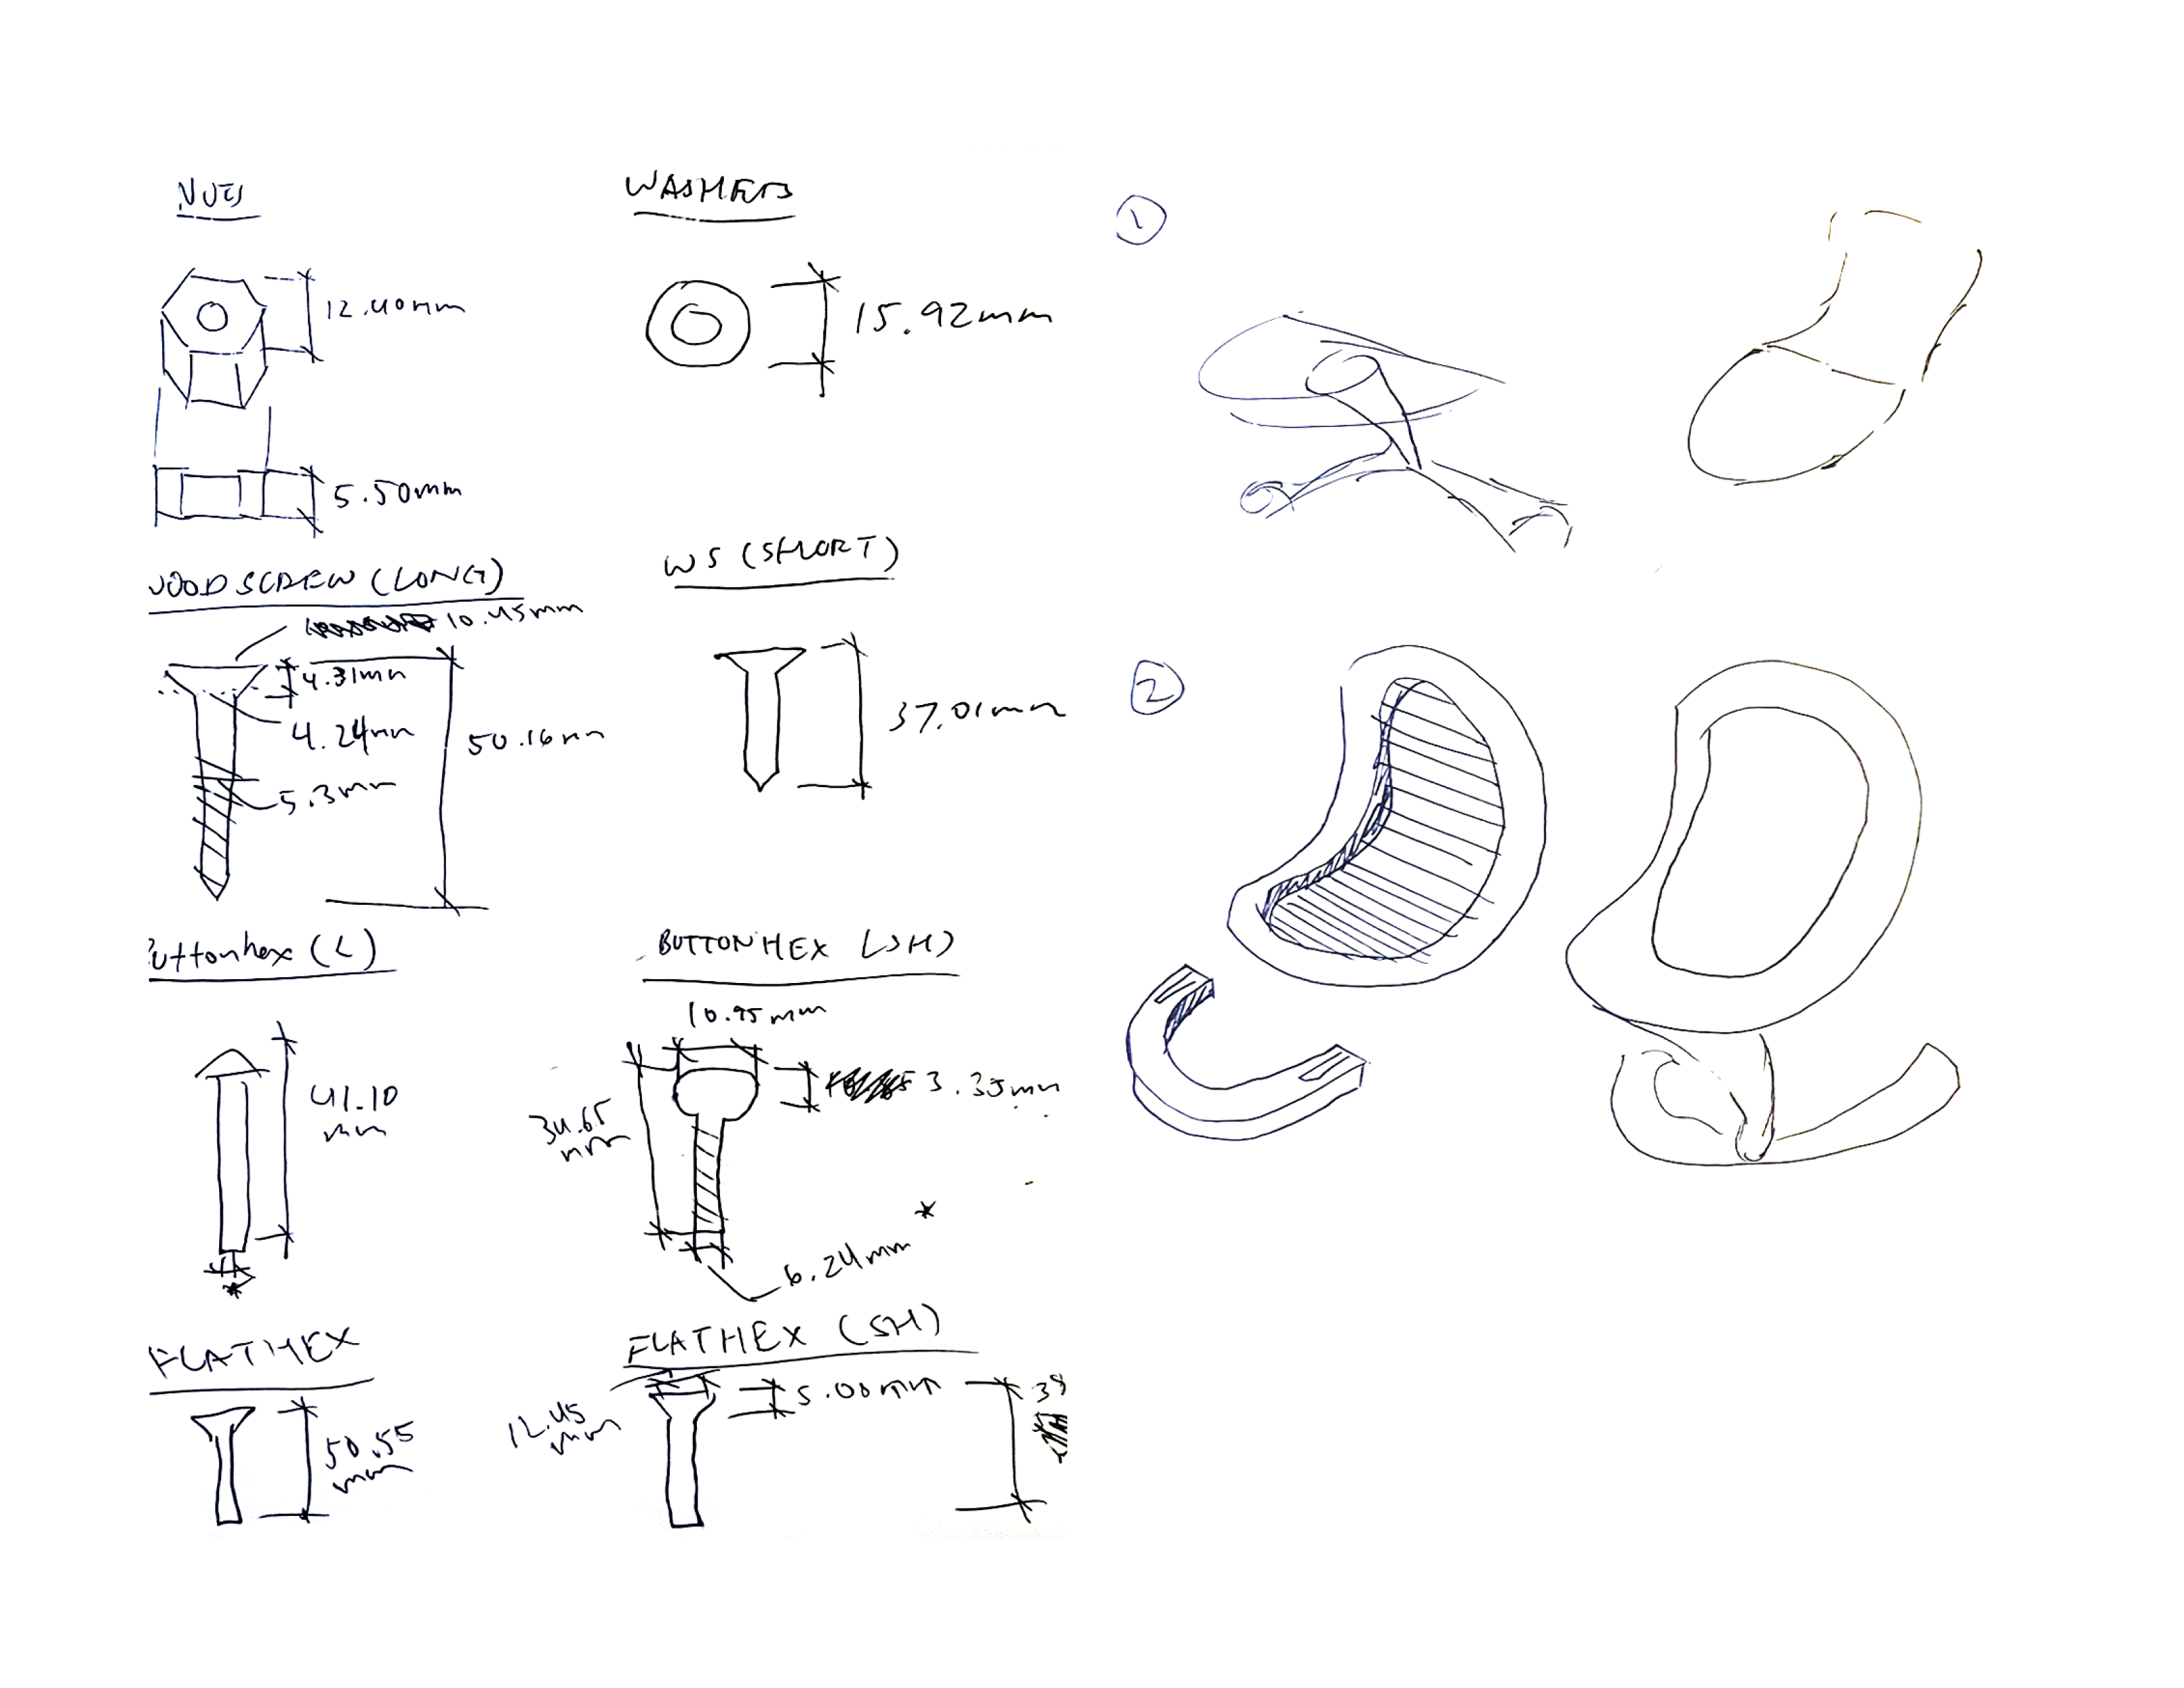 NUTS
12.40mm
5.50mm
WASHERS
15.92mm
WOODSCREW (LONG)
10.45mm
4.31mm
4.24mm
50.16mm
5.3mm
WS (SHORT)
37.01mm
Buttonhex (L)
41.10
mm
*
BUTTONHEX (SH)
10.95mm
3.35mm
34.65
mm
*
6.24mm
FLATHEX
50.55
mm
FLATHEX (SH)
5.00mm
12.45
mm
1
2